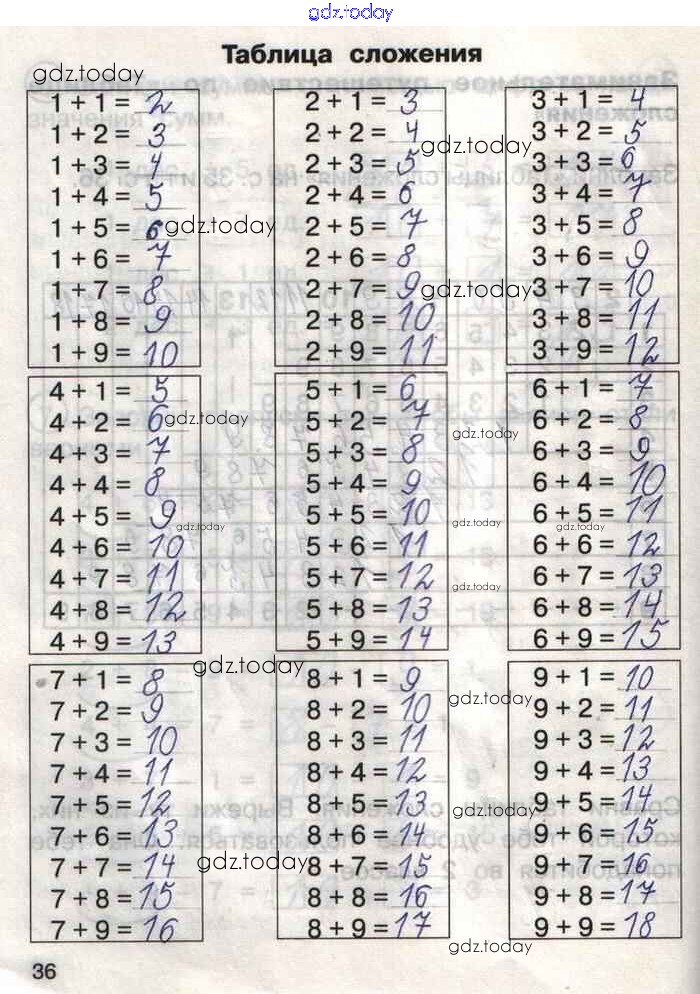 gdz.today
Таблица сложения
gdz.today
1 + 1 = 2
1 + 2 = 3
1 + 3 = 4
1 + 4 = 5
1 + 5 = 6 gdz.today
1 + 6 = 7
1 + 7 = 8
1 + 8 = 9
1 + 9 = 10
2 + 1 = 3
2 + 2 = 4 gdz.today
2 + 3 = 5
2 + 4 = 6
2 + 5 = 7
2 + 6 = 8
2 + 7 = 9 gdz.today
2 + 8 = 10
2 + 9 = 11
3 + 1 = 4
3 + 2 = 5
3 + 3 = 6
3 + 4 = 7
3 + 5 = 8
3 + 6 = 9
3 + 7 = 10
3 + 8 = 11
3 + 9 = 12
4 + 1 = 5
4 + 2 = 6 gdz.today
4 + 3 = 7
4 + 4 = 8
4 + 5 = 9 gdz.today
4 + 6 = 10
4 + 7 = 11
4 + 8 = 12
4 + 9 = 13
5 + 1 = 6
5 + 2 = 7 gdz.today
5 + 3 = 8
5 + 4 = 9
5 + 5 = 10 gdz.today
5 + 6 = 11
5 + 7 = 12 gdz.today
5 + 8 = 13
5 + 9 = 14
6 + 1 = 7
6 + 2 = 8
6 + 3 = 9
6 + 4 = 10
6 + 5 = 11
gdz.today
6 + 6 = 12
6 + 7 = 13
6 + 8 = 14
6 + 9 = 15
gdz.today
7 + 1 = 8
7 + 2 = 9
7 + 3 = 10
7 + 4 = 11
7 + 5 = 12
7 + 6 = 13
7 + 7 = 14 gdz.today
7 + 8 = 15
7 + 9 = 16
8 + 1 = 9 gdz.today
8 + 2 = 10
8 + 3 = 11
8 + 4 = 12
8 + 5 = 13 gdz.today
8 + 6 = 14
8 + 7 = 15
8 + 8 = 16
8 + 9 = 17
gdz.today
9 + 1 = 10
9 + 2 = 11
9 + 3 = 12
9 + 4 = 13
9 + 5 = 14
9 + 6 = 15
9 + 7 = 16
9 + 8 = 17
9 + 9 = 18
36